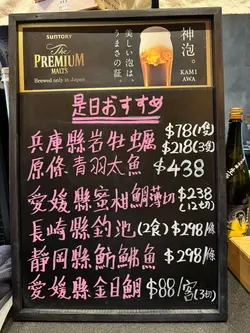 SUNTORY
The
PREMIUM
MALT'S
Brewed only in Japan
美しい泡は、
うまさの証。
神泡。
KAMI
AWA
是日おすすめ
兵庫縣岩牡蠣 $78(1隻)
$218(3隻)
原條青羽太魚 $438
愛媛縣蜜柑鯛薄切 $238
(12切)
長崎縣釣池(2食) $298/條
静岡縣魴鮄魚 $298/條
愛媛縣金目鯛 $88/客(3切)